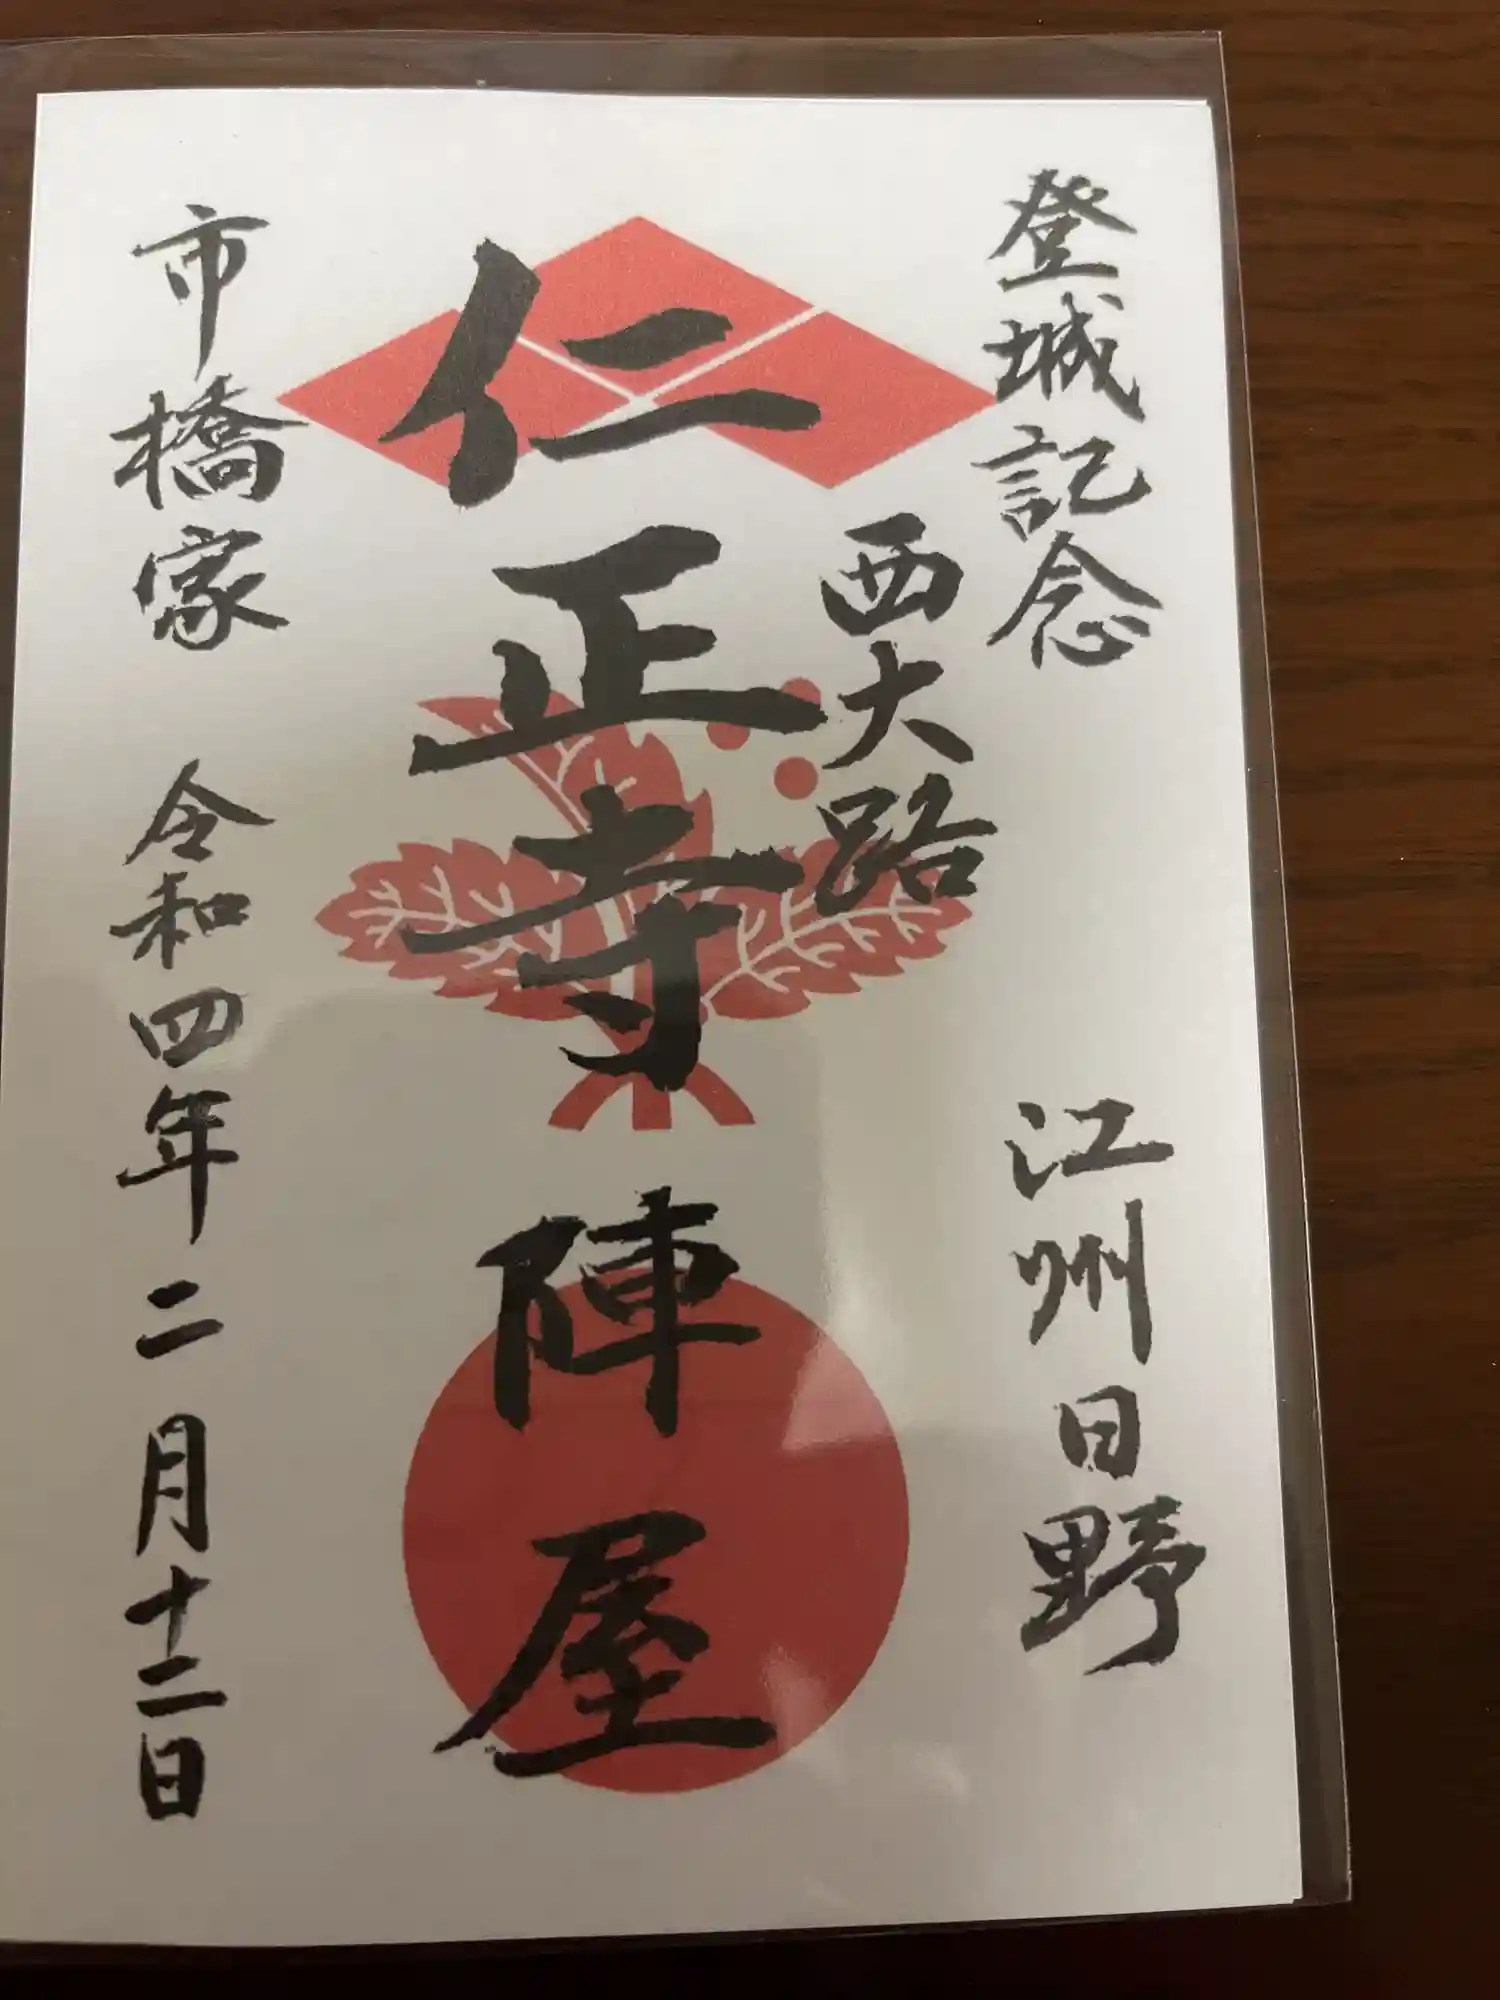 登城記念 江州日野
西大路
仁正寺陣屋
市橋家 令和四年二月十二日